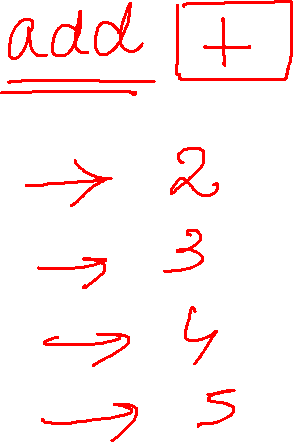 add +
→ 2
→ 3
→ 4
→ 5